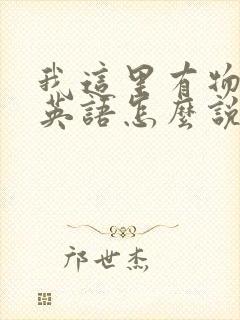 我這里有物
英語怎麼說
邝世杰